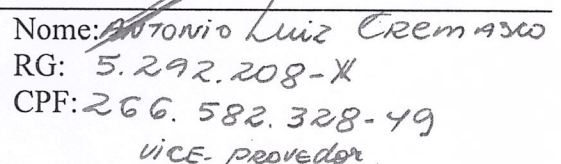 Nome: Antonio Luiz Cremasco
RG: 5.292.208-X
CPF: 266.582.328-49
Vice-Provedor